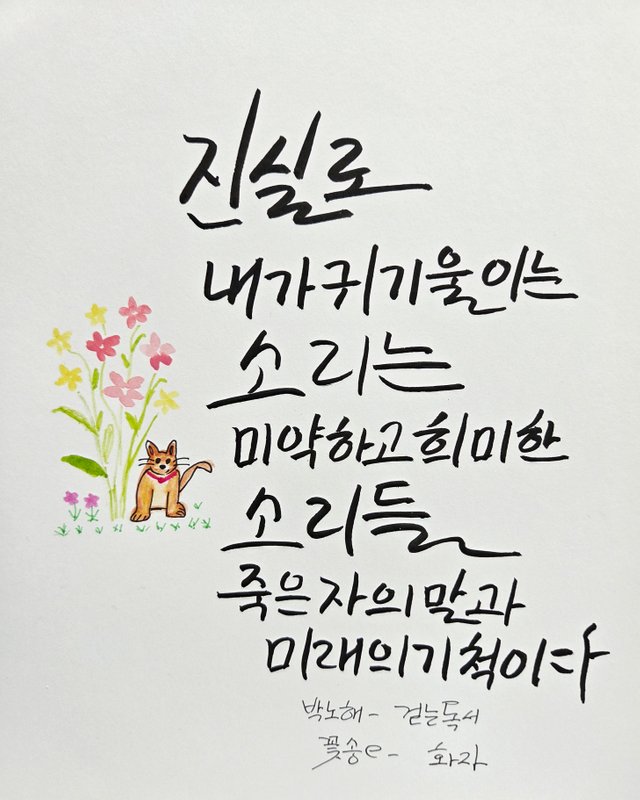 진실로
내가 귀 기울이는
소리는
미약하고 희미한
소리들
죽은 자의 말과
미래의 기척이다
박노해 - 걷는독서
꽃송e - 화자